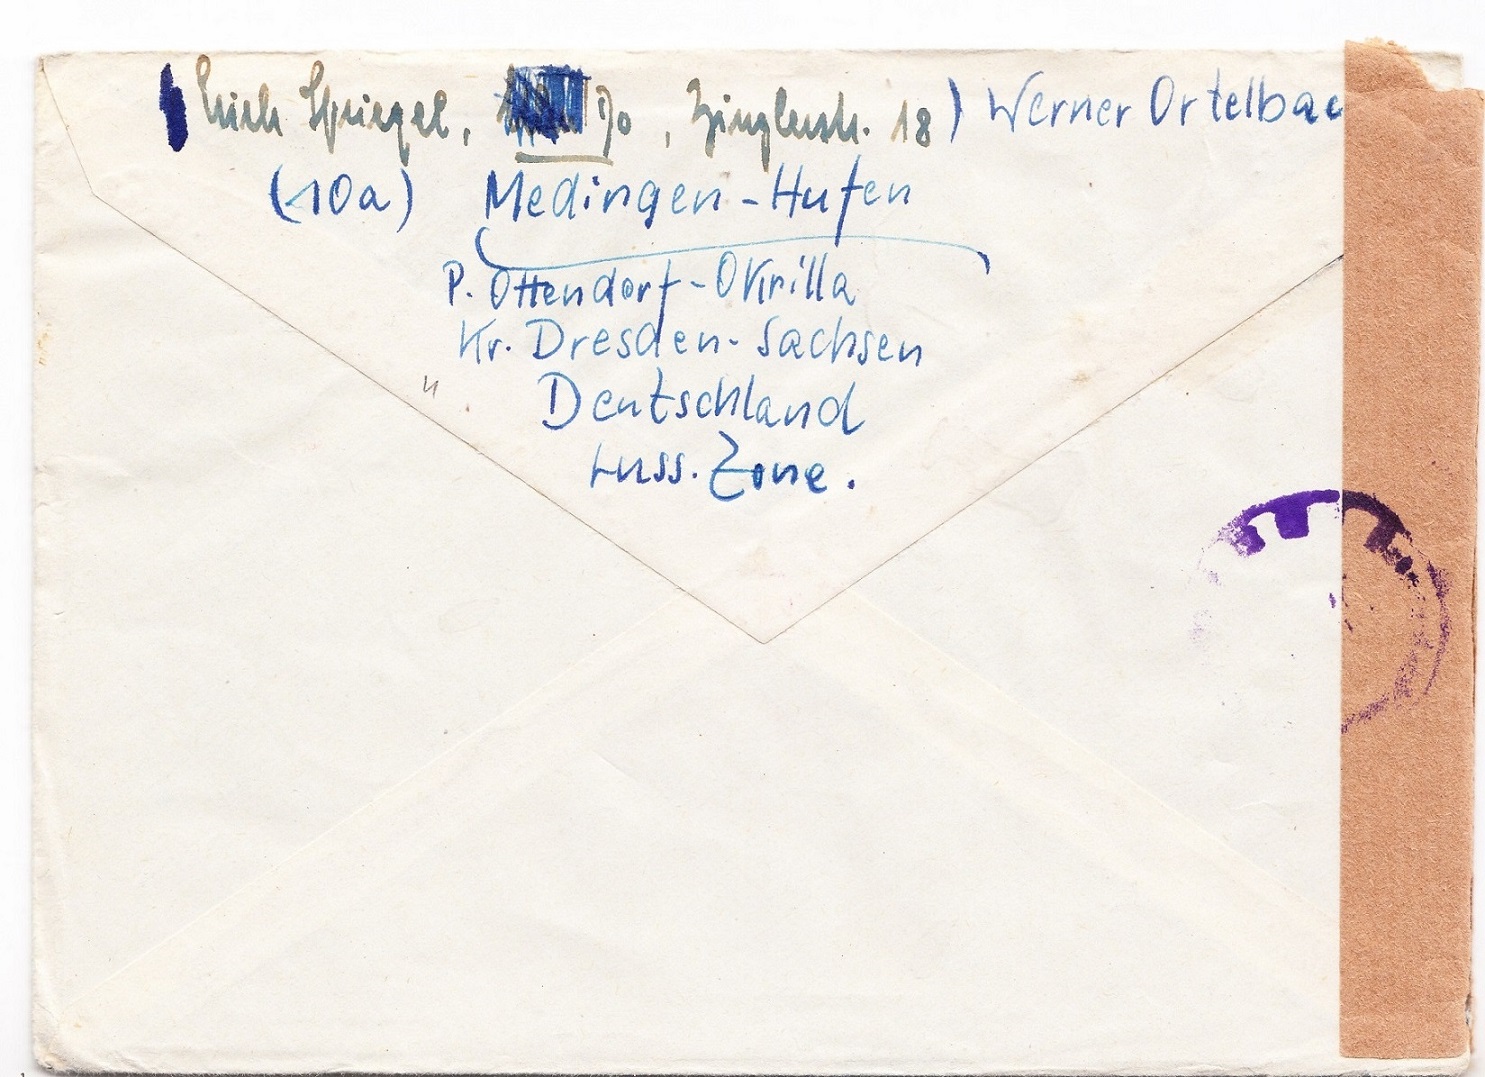 Erich Spiegel, 70, Zinglerstr. 18) Werner Ortelbac
(10a) Medingen-Hufen
P. Ottendorf-Okrilla
Kr. Dresden-Sachsen
Deutschland
russ. Zone.